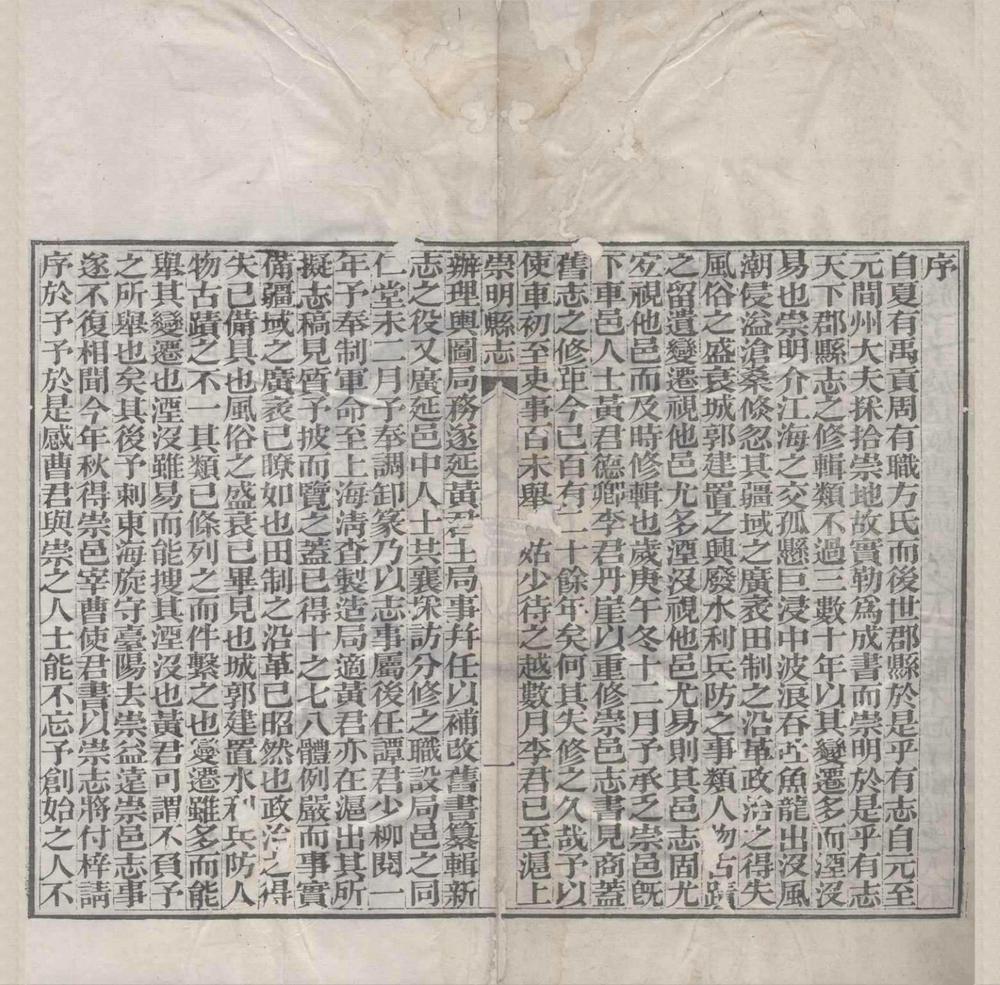 序
自夏有禹貢周有職方氏而後世郡縣於是乎有志自元至
元間州大夫採拾崇地故實勒爲成書而崇明於是乎有志
天下郡縣志之修輯類不過三數十年以其變遷多而湮沒
易也崇明介江海之交孤懸巨浸中波浪吞吐魚龍出沒風
潮侵溢滄桑倏忽其疆域之廣袤田制之沿革政治之得失
風俗之盛衰城郭建置之興廢水利兵防之事類人物古蹟
之留遺變遷視他邑尤多湮沒視他邑尤易則其邑志固尤
宜視他邑而及時修輯也歲庚午冬十二月予承之崇邑旣
下車邑人士黃君德卿李君丹崖以重修崇邑志書見商蓋
舊志之修距今已百有二十餘年矣何其失修之久哉予以
使車初至吏事百未舉姑少待之越數月李君已至滬上
崇明縣志
一
辦理輿圖局務遂延黃君主局事幷任以補改舊書纂輯新
志之役又廣延邑中人士共襄采訪分修之職設局邑之同
仁堂未二月予奉調卸篆乃以志事屬後任譚君少柳閱一
年予奉制軍命至上海淸查製造局適黃君亦在滬出其所
擬志稿見質予披而覽之蓋已得十之七八體例嚴而事實
備疆域之廣袤已暸如也田制之沿革已昭然也政治之得
失已備具也風俗之盛衰已畢見也城郭建置水利兵防人
物古蹟之不一其類已條列之而件繫之也變遷雖多而能
舉其變遷也湮沒雖易而能搜其湮沒也黃君可謂不負予
之所舉也矣其後予刺東海旋守臺陽去崇益遠崇邑志事
遂不復相聞今年秋得崇邑宰曹使君書以崇志將付梓請
序於予予於是感曹君與崇之人士能不忘予創始之人不